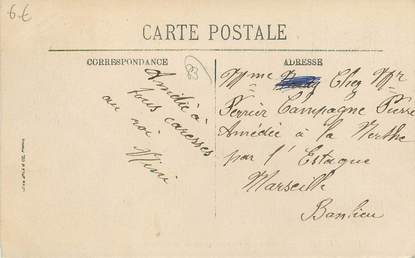 6.€
CARTE POSTALE
CORRESPONDANCE
ADRESSE
Amédée à
tous caresses
au roi
Mme Chez Mr
Ferrier Campagne Pierre
Amédée à la Nerthe
par l'Estaque
Marseille
Banlieu